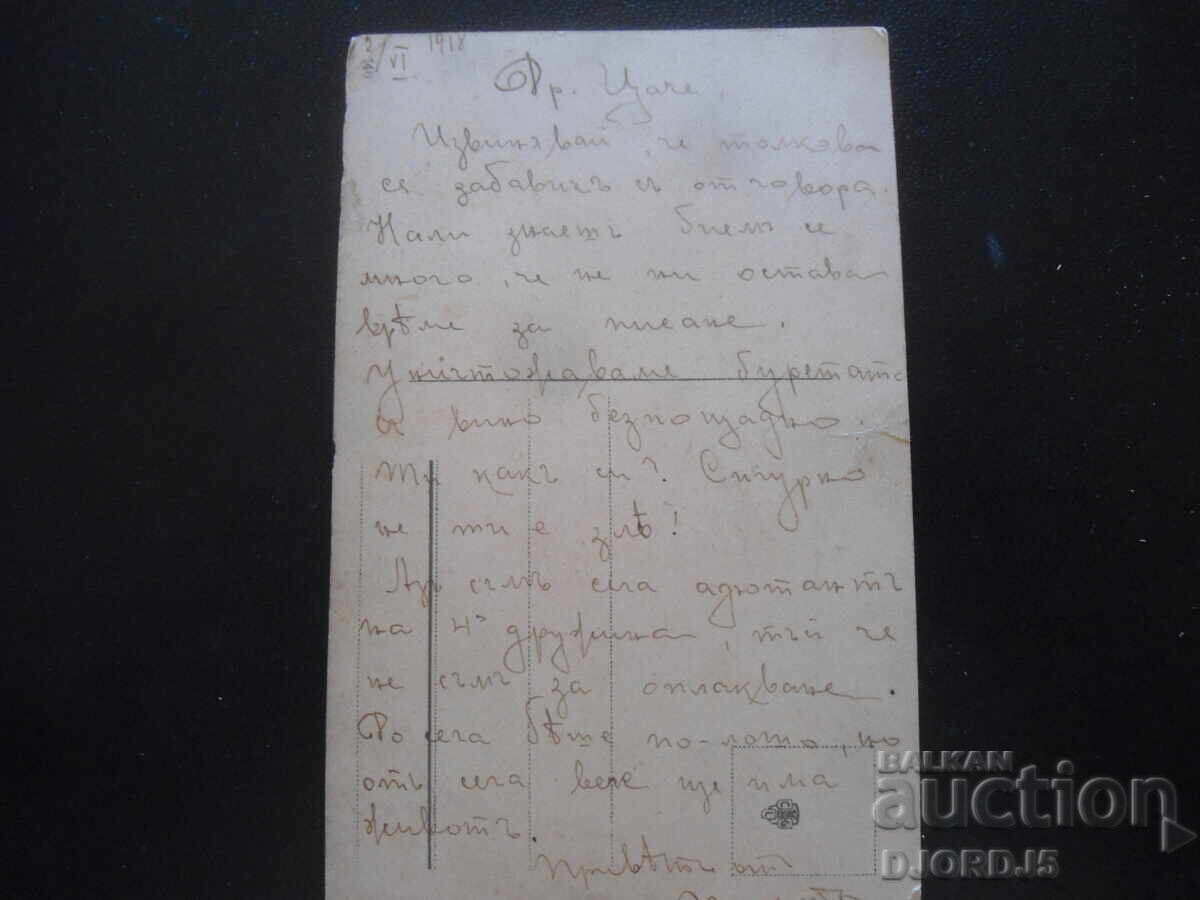 2/VI 1918
Др. Цаче,
Извинявай, че толкова
се забавихъ съ отговора.
Нали знаешъ биемъ се
много, че не ни остава
врѣме за писане.
Уничтожаваме буретата
вино безпощадно.
Ти какъ си? Сигурно
не ти е злѣ!
Азъ съмъ сега адютантъ
на 4а дружина, тъй че
не съмъ за оплакване.
До сега бѣше по-лошо, но
отъ сега вече ще има
животъ.
Привѣтъ от
BALKAN
auction
DJORDJ5